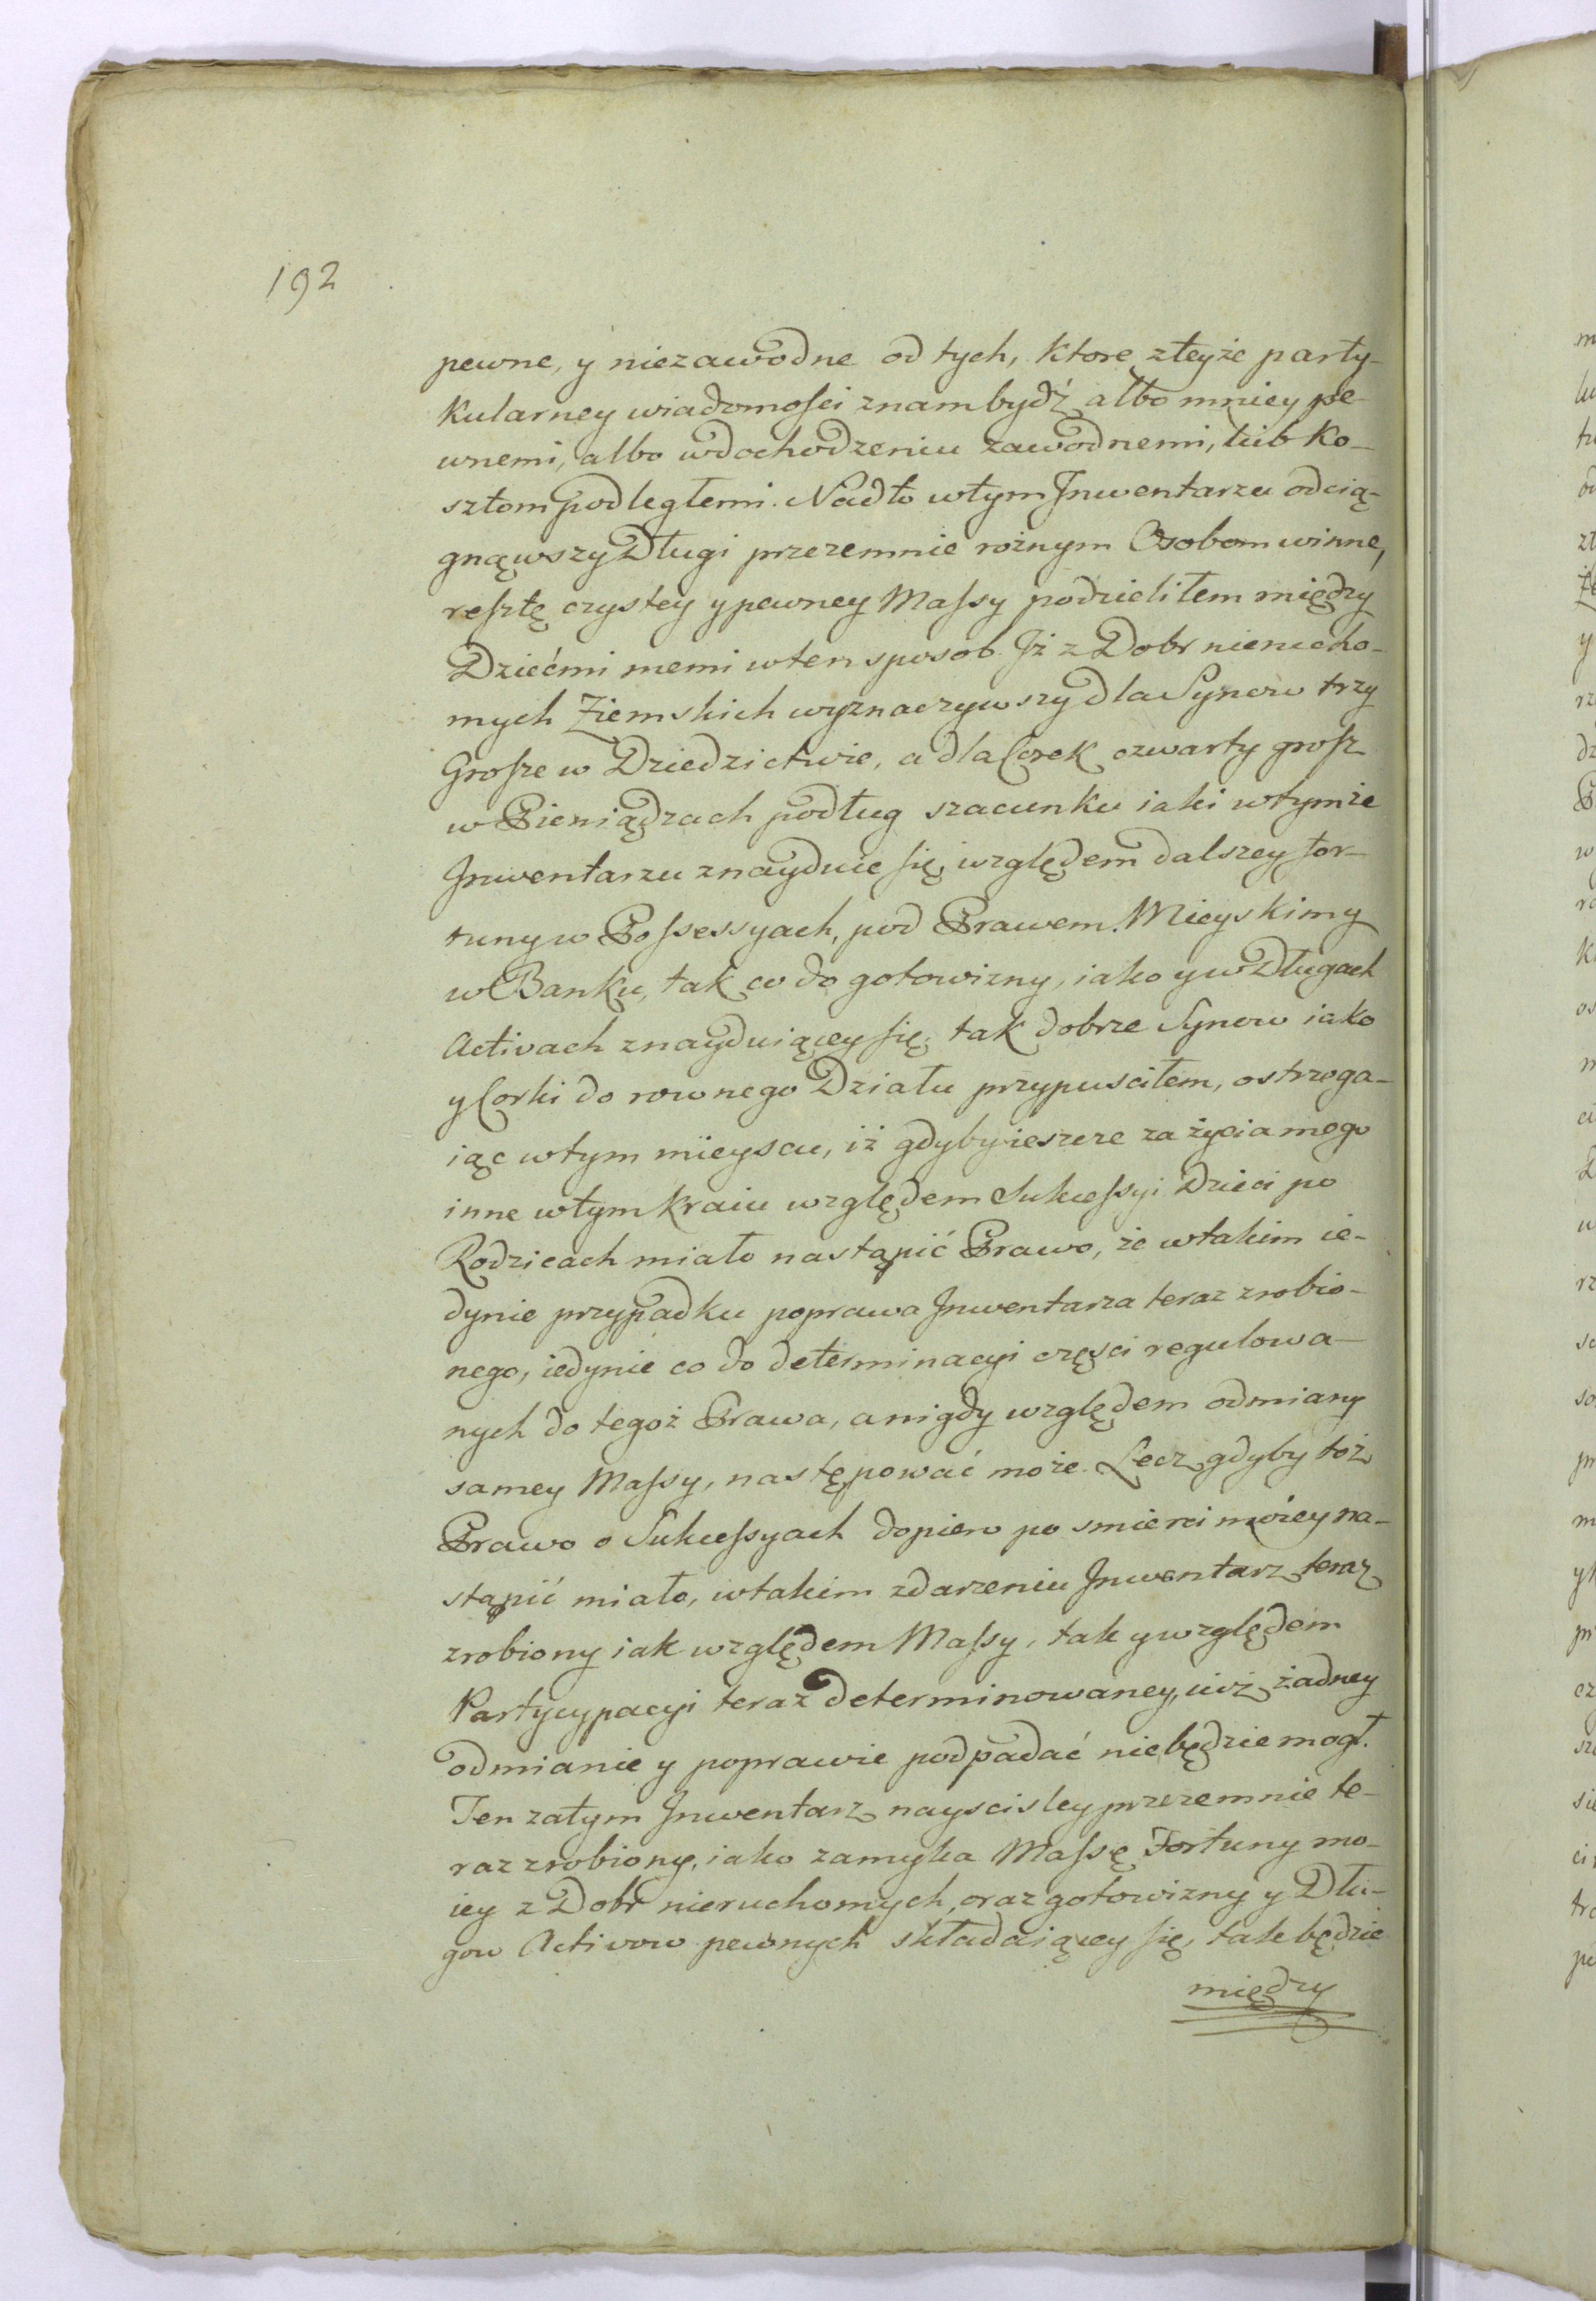 192
pewne, y niezawodne od tych, ktore zteyże party-
kularney wiadomości znam bydź albo mniey pe-
wnemi, albo wdochodzeniu zawodnemi, lub ko-
sztom podległemi. Nadto wtym Jnwentarzu odcią-
gnąwszy Długi przezemnie rożnym Osobom winne,
resztę czystey y pewney Massy podzieliłem między
Dziećmi memi wten sposob. Jż z Dobr nierucho-
mych Ziemskich wyznaczywszy dla Synow trzy
Grosze w Dziedzictwie, a dla Corek czwarty grosz
w Pieniądzach podług szacunku iaki wtymże
Jnwentarzu znayduie się, względem dalszey for-
tuny w Possessyach, pod Prawem Mieyskim y
w Banku, tak co do gotowizny, iako y w Długach
Activach znayduiącey się, tak dobrze Synow iako
y Corki do rownego Działu przypusciłem, ostrzega-
iąc wtym mieyscu, iż gdyby ieszcze za życia mego
inne wtym kraiu względem Sukcessyi Dzieci po
Rodzicach miało nastąpić Prawo, że wtakim ie-
dynie przypadku poprawa Jnwentarza teraz zrobio-
nego, iedynie co do determinacyi części regulowa-
nych do tegoż Prawa, a nigdy względem odmiany
samey Massy, następować może. Lecz gdyby toż
Prawo o Sukcessyach dopiero po smierci moiey na-
stąpić miało, wtakim zdarzeniu Jnwentarz teraz
zrobiony iak względem Massy, tak y względem
Partycypacyi teraz determinowaney, iuż żadney
odmianie y poprawie podpadać niebędzie mogł.
Ten zatym Jnwentarz nayscisley przezemnie te-
raz zrobiony, iako zamyka Massę Fortuny mo-
iey z Dobr nieruchomych, oraz gotowizny y Dłu-
gow Activow pewnych składaiącey się, tak będzie
między